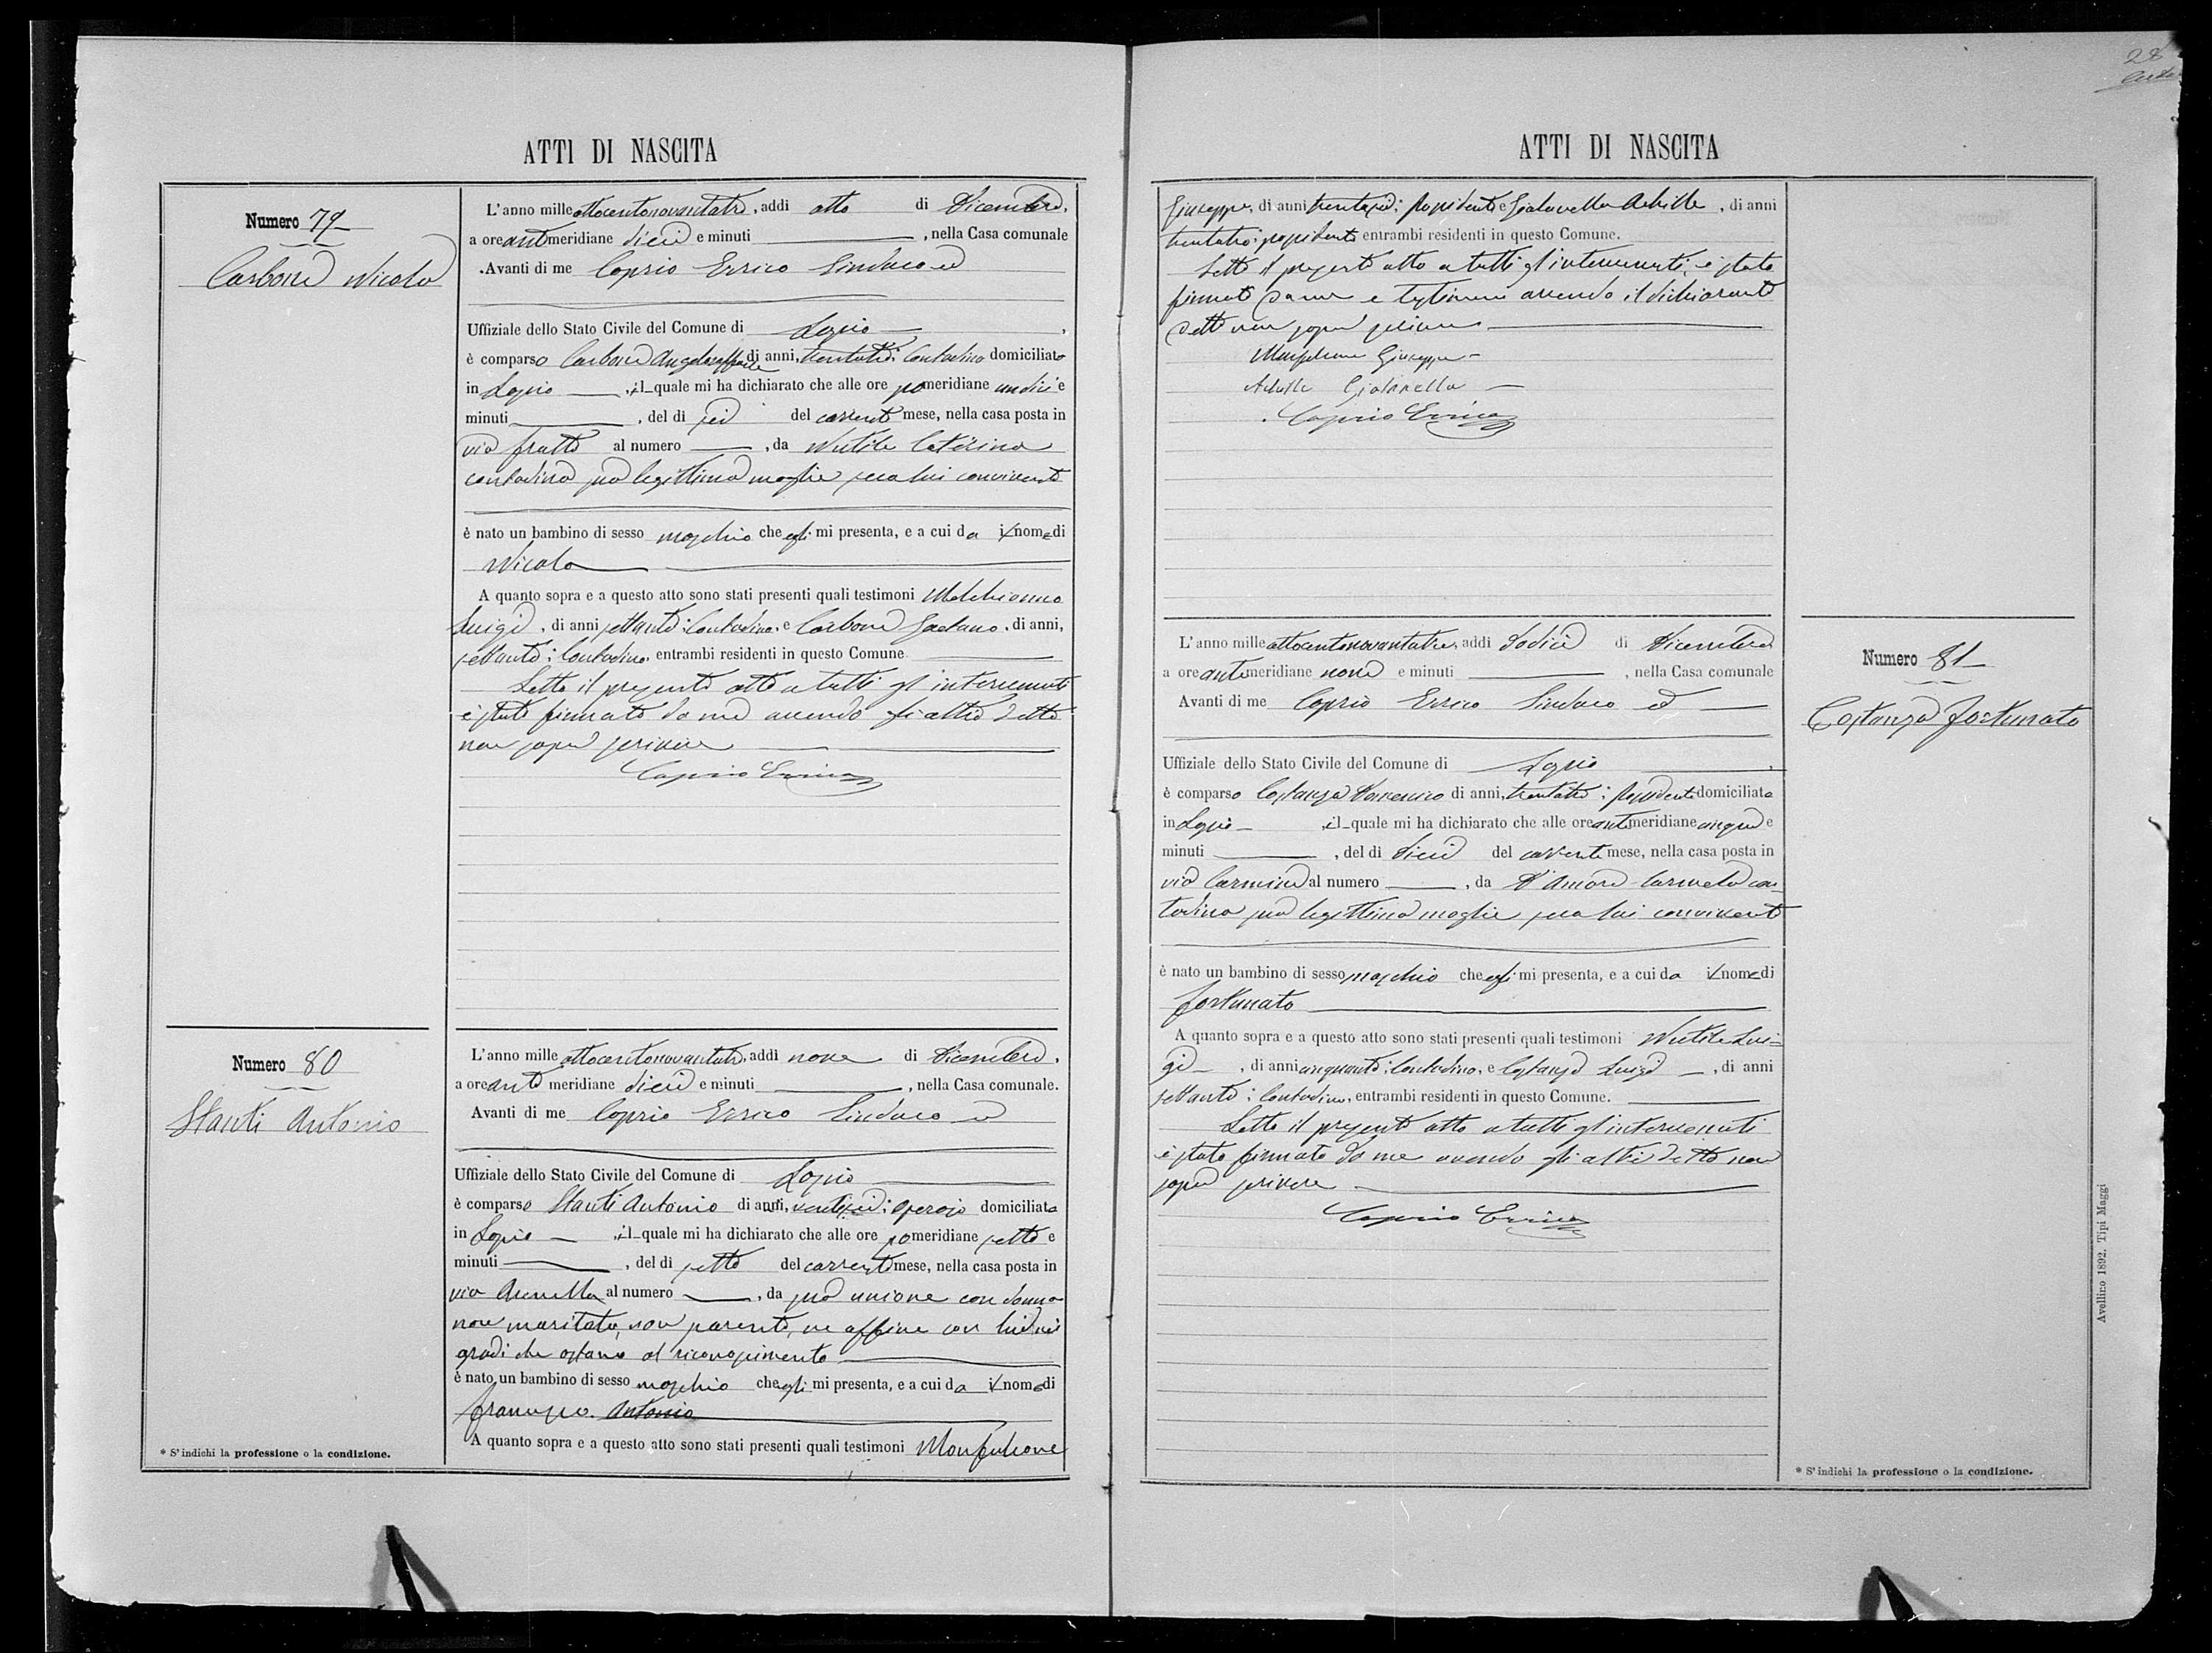 28
ATTI DI NASCITA
Numero 79
Carbone Nicola
L'anno mille ottocentonovantatre, addi otto di Dicembre,
a ore antimeridiane dieci e minuti, nella Casa comunale
Avanti di me Caprio Errico Sindaco ed
Uffiziale dello Stato Civile del Comune di Lapio,
è comparso Carbone Angeloraffaele di anni, trentatre; Contadino domiciliato
in Lapio, il quale mi ha dichiarato che alle ore pomeridiane undici e
minuti, del dì sei del corrente mese, nella casa posta in
via fratte al numero, da Nutile Caterina
contadina sua legittima moglie seco lui convivente
è nato un bambino di sesso maschio che egli mi presenta, e a cui da il nome di
Nicola
A quanto sopra e a questo atto sono stati presenti quali testimoni Melchionno
Luigi, di anni settanta; Contadino, e Carbone Gaetano, di anni,
settanta; Contadino, entrambi residenti in questo Comune
Letto il presente atto a tutti gl'intervenuti
è stato firmato da me avendo gli altri detto
non saper scrivere
Caprio Errico
Numero 80
Stanti Antonio
L'anno mille ottocentonovantatre, addi nove di Dicembre,
a ore antimeridiane dieci e minuti, nella Casa comunale.
Avanti di me Caprio Errico Sindaco ed
Uffiziale dello Stato Civile del Comune di Lapio
è comparso Stanti Antonio di anni, ventisei; operaio domiciliato
in Lapio, il quale mi ha dichiarato che alle ore pomeridiane sette e
minuti, del dì sette del corrente mese, nella casa posta in
via Arenella al numero, da sua unione con donna
non maritata, non parente, ne affine con lui nei
gradi che ostano al riconoscimento
è nato un bambino di sesso maschio che egli mi presenta, e a cui da il nome di
Antonio
A quanto sopra e a questo atto sono stati presenti quali testimoni Monfulcone
* S'indichi la professione o la condizione.
ATTI DI NASCITA
Giuseppe, di anni trentasei; possidente e Gialanella Achille, di anni
trentatre; possidente entrambi residenti in questo Comune.
Letto il presente atto a tutti gl'intervenuti, è stato
firmato da me e testimoni avendo il dichiarante
detto non saper scrivere
Giuseppe
Achille Gialanella
Caprio Errico
L'anno mille ottocentonovantatre, addi dodici di Dicembre
a ore antimeridiane nove e minuti, nella Casa comunale
Avanti di me Caprio Errico Sindaco ed
Uffiziale dello Stato Civile del Comune di Lapio,
è comparso Costanza Domenico di anni, trentatre; possidente domiciliato
in Lapio, il quale mi ha dichiarato che alle ore antimeridiane cinque e
minuti, del dì dieci del corrente mese, nella casa posta in
via Carmine al numero, da D'Amore Carmela con-
tadina sua legittima moglie seco lui convivente
è nato un bambino di sesso maschio che egli mi presenta, e a cui da il nome di
fortunato
A quanto sopra e a questo atto sono stati presenti quali testimoni Nutile Lui-
gi, di anni cinquanta; Contadino, e Costanza Luigi, di anni
settanta; Contadino, entrambi residenti in questo Comune.
Letto il presente atto a tutti gl'intervenuti
è stato firmato da me avendo gli altri detto non
saper scrivere
Caprio Errico
Numero 81
Costanza fortunato
* S'indichi la professione o la condizione.
Avellino 1892. Tipi Maggi